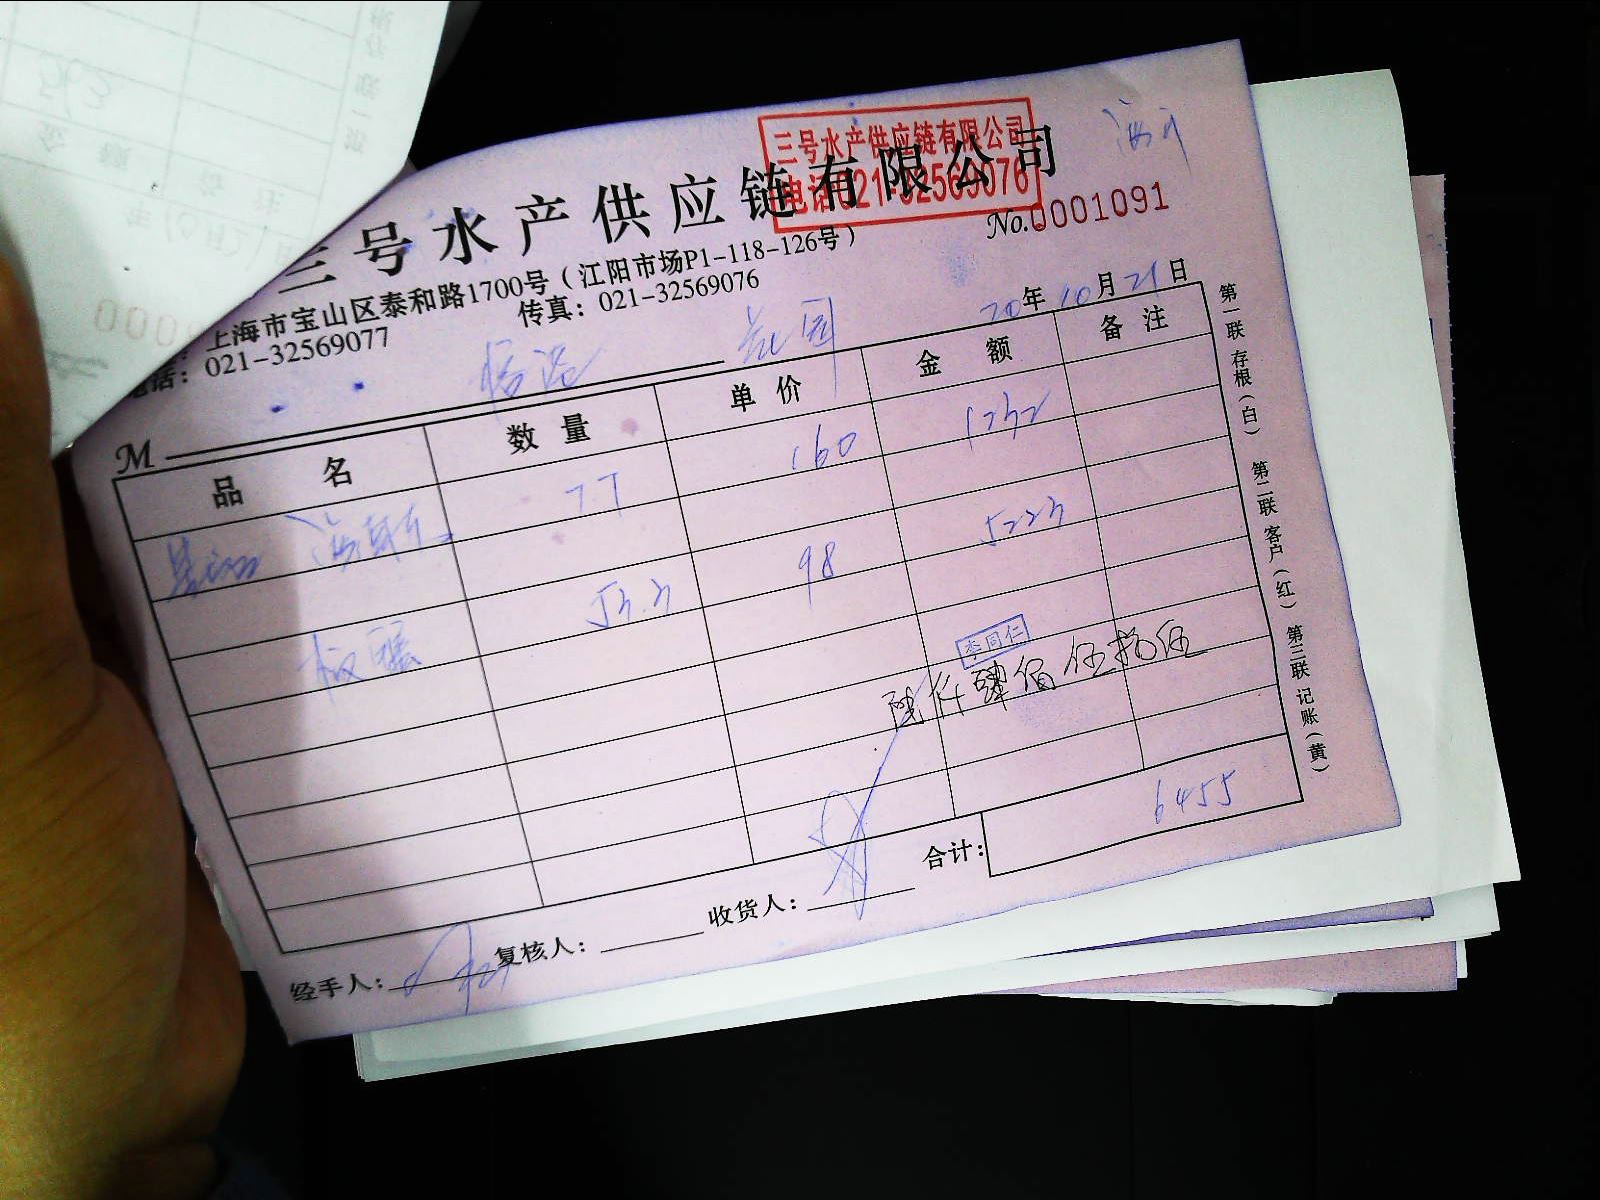 三号水产供应链有限公司
三号水产供应链有限公司
电话021-32569076
No.0001091
上海市宝山区泰和路1700号（江阳市场P1-118-126号）
电话：021-32569077 传真：021-32569076
20年10月21日
M 花园
品名 数量 单价 金额 备注
7.7 160 1232
53.3 98 5223
李同仁
陆仟肆佰伍拾伍
合计：6455
经手人： 复核人： 收货人：
第一联存根（白） 第二联客户（红） 第三联记账（黄）